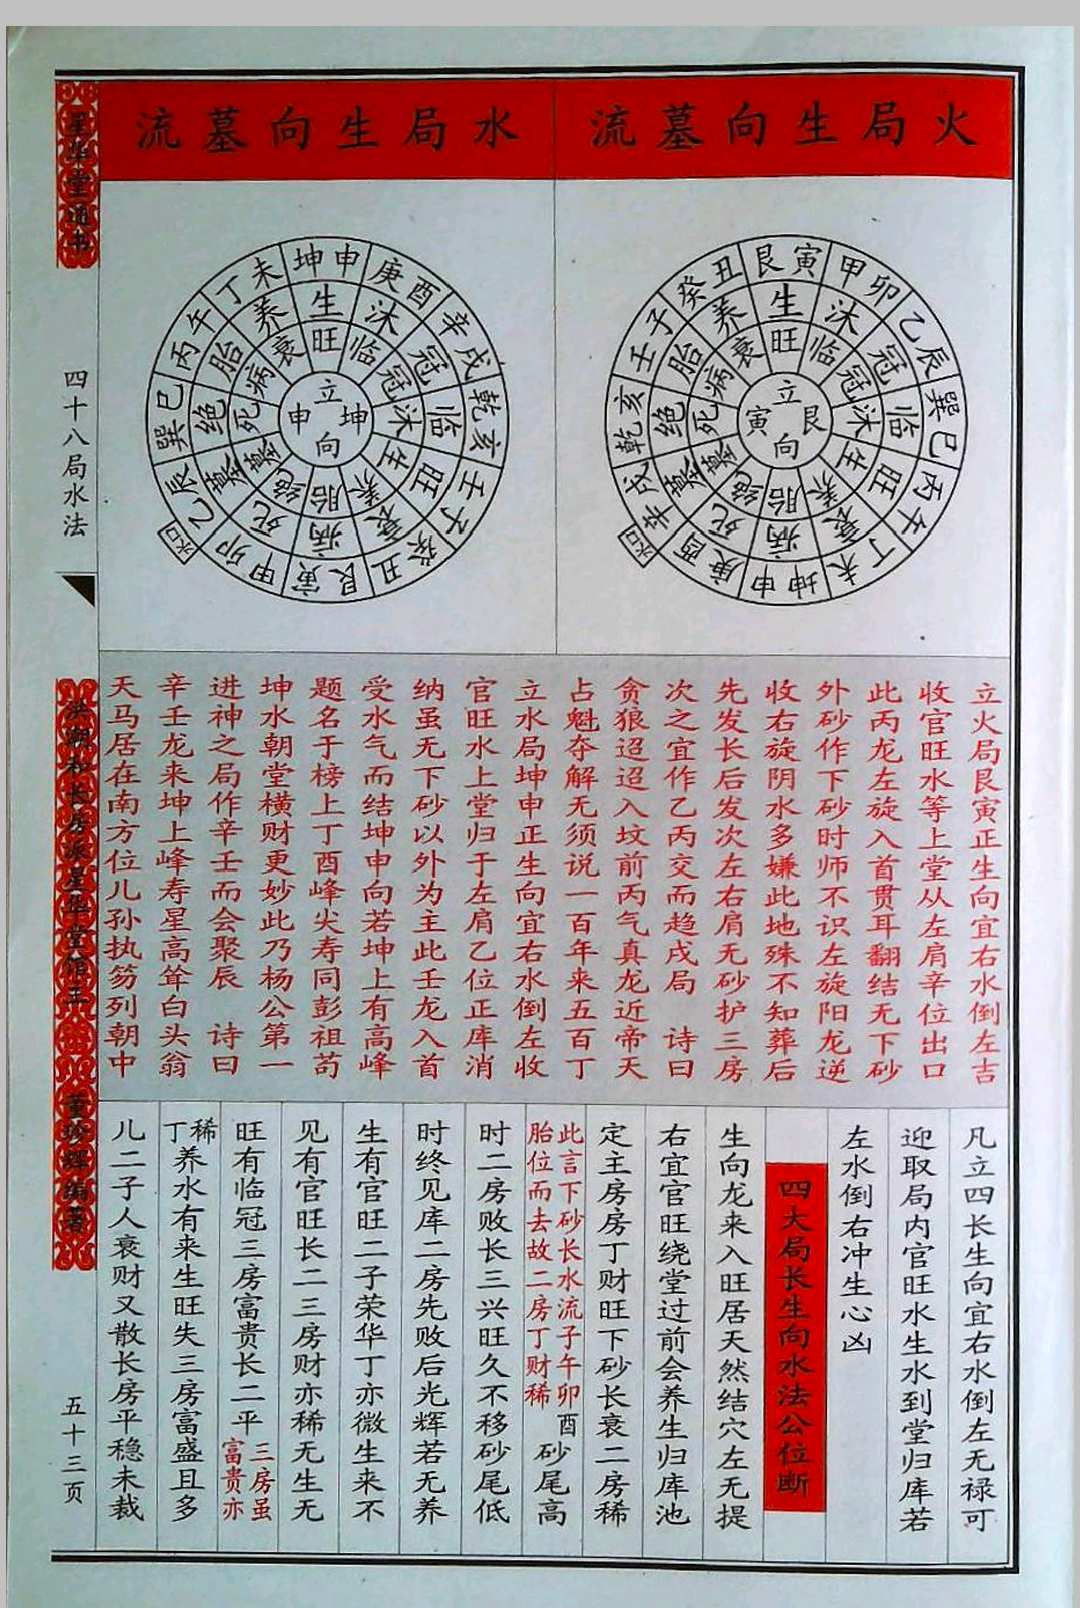 火局生向墓流
水局生向墓流
艮寅
甲卯
乙辰
巽巳
丙午
丁未
坤申
庚酉
辛戌
乾亥
壬子
癸丑
生
沐
冠
临
旺
衰
病
死
墓
绝
胎
养
旺
临
冠
沐
生
养
胎
绝
墓
死
病
衰
立艮向寅
水口
坤申
庚酉
辛戌
乾亥
壬子
癸丑
艮寅
甲卯
乙辰
巽巳
丙午
丁未
生
沐
冠
临
旺
衰
病
死
墓
绝
胎
养
旺
临
冠
沐
生
养
胎
绝
墓
死
病
衰
立坤向申
水口
立火局艮寅正生向宜右水倒左吉
收官旺水等上堂从左肩辛位出口
此丙龙左旋入首贯耳翻结无下砂
外砂作下砂时师不识左旋阳龙逆
收右旋阴水多嫌此地殊不知葬后
先发长后发次左右肩无砂护三房
次之宜作乙丙交而趋戌局 诗曰
贪狼迢迢入坟前丙气真龙近帝天
占魁夺解无须说一百年来五百丁
立水局坤申正生向宜右水倒左收
官旺水上堂归于左肩乙位正库消
纳虽无下砂以外为主此壬龙入首
受水气而结坤申向若坤上有高峰
题名于榜上丁酉峰尖寿同彭祖苟
坤水朝堂横财更妙此乃杨公第一
进神之局作辛壬而会聚辰 诗曰
辛壬龙来坤上峰寿星高耸白头翁
天马居在南方位儿孙执笏列朝中
凡立四长生向宜右水倒左无禄可
迎取局内官旺水生水到堂归库若
左水倒右冲生心凶
四大局长生向水法公位断
生向龙来入旺居天然结穴左无提
右宜官旺绕堂过前会养生归库池
定主房房丁财旺下砂长衰二房稀
此言下砂长水流子午卯酉
胎位而去故二房丁财稀
砂尾高
时二房败长三兴旺久不移砂尾低
时终见库二房先败后光辉若无养
生有官旺二子荣华丁亦微生来不
见有官旺长二三房财亦稀无生无
旺有临冠三房富贵长二平
三房虽
富贵亦
丁稀
养水有来生旺失三房富盛且多
儿二子人衰财又散长房平稳未裁
星华堂通书
四十八局水法
洪潮和长房派星华堂馆主
董珍辉编著
五十三页